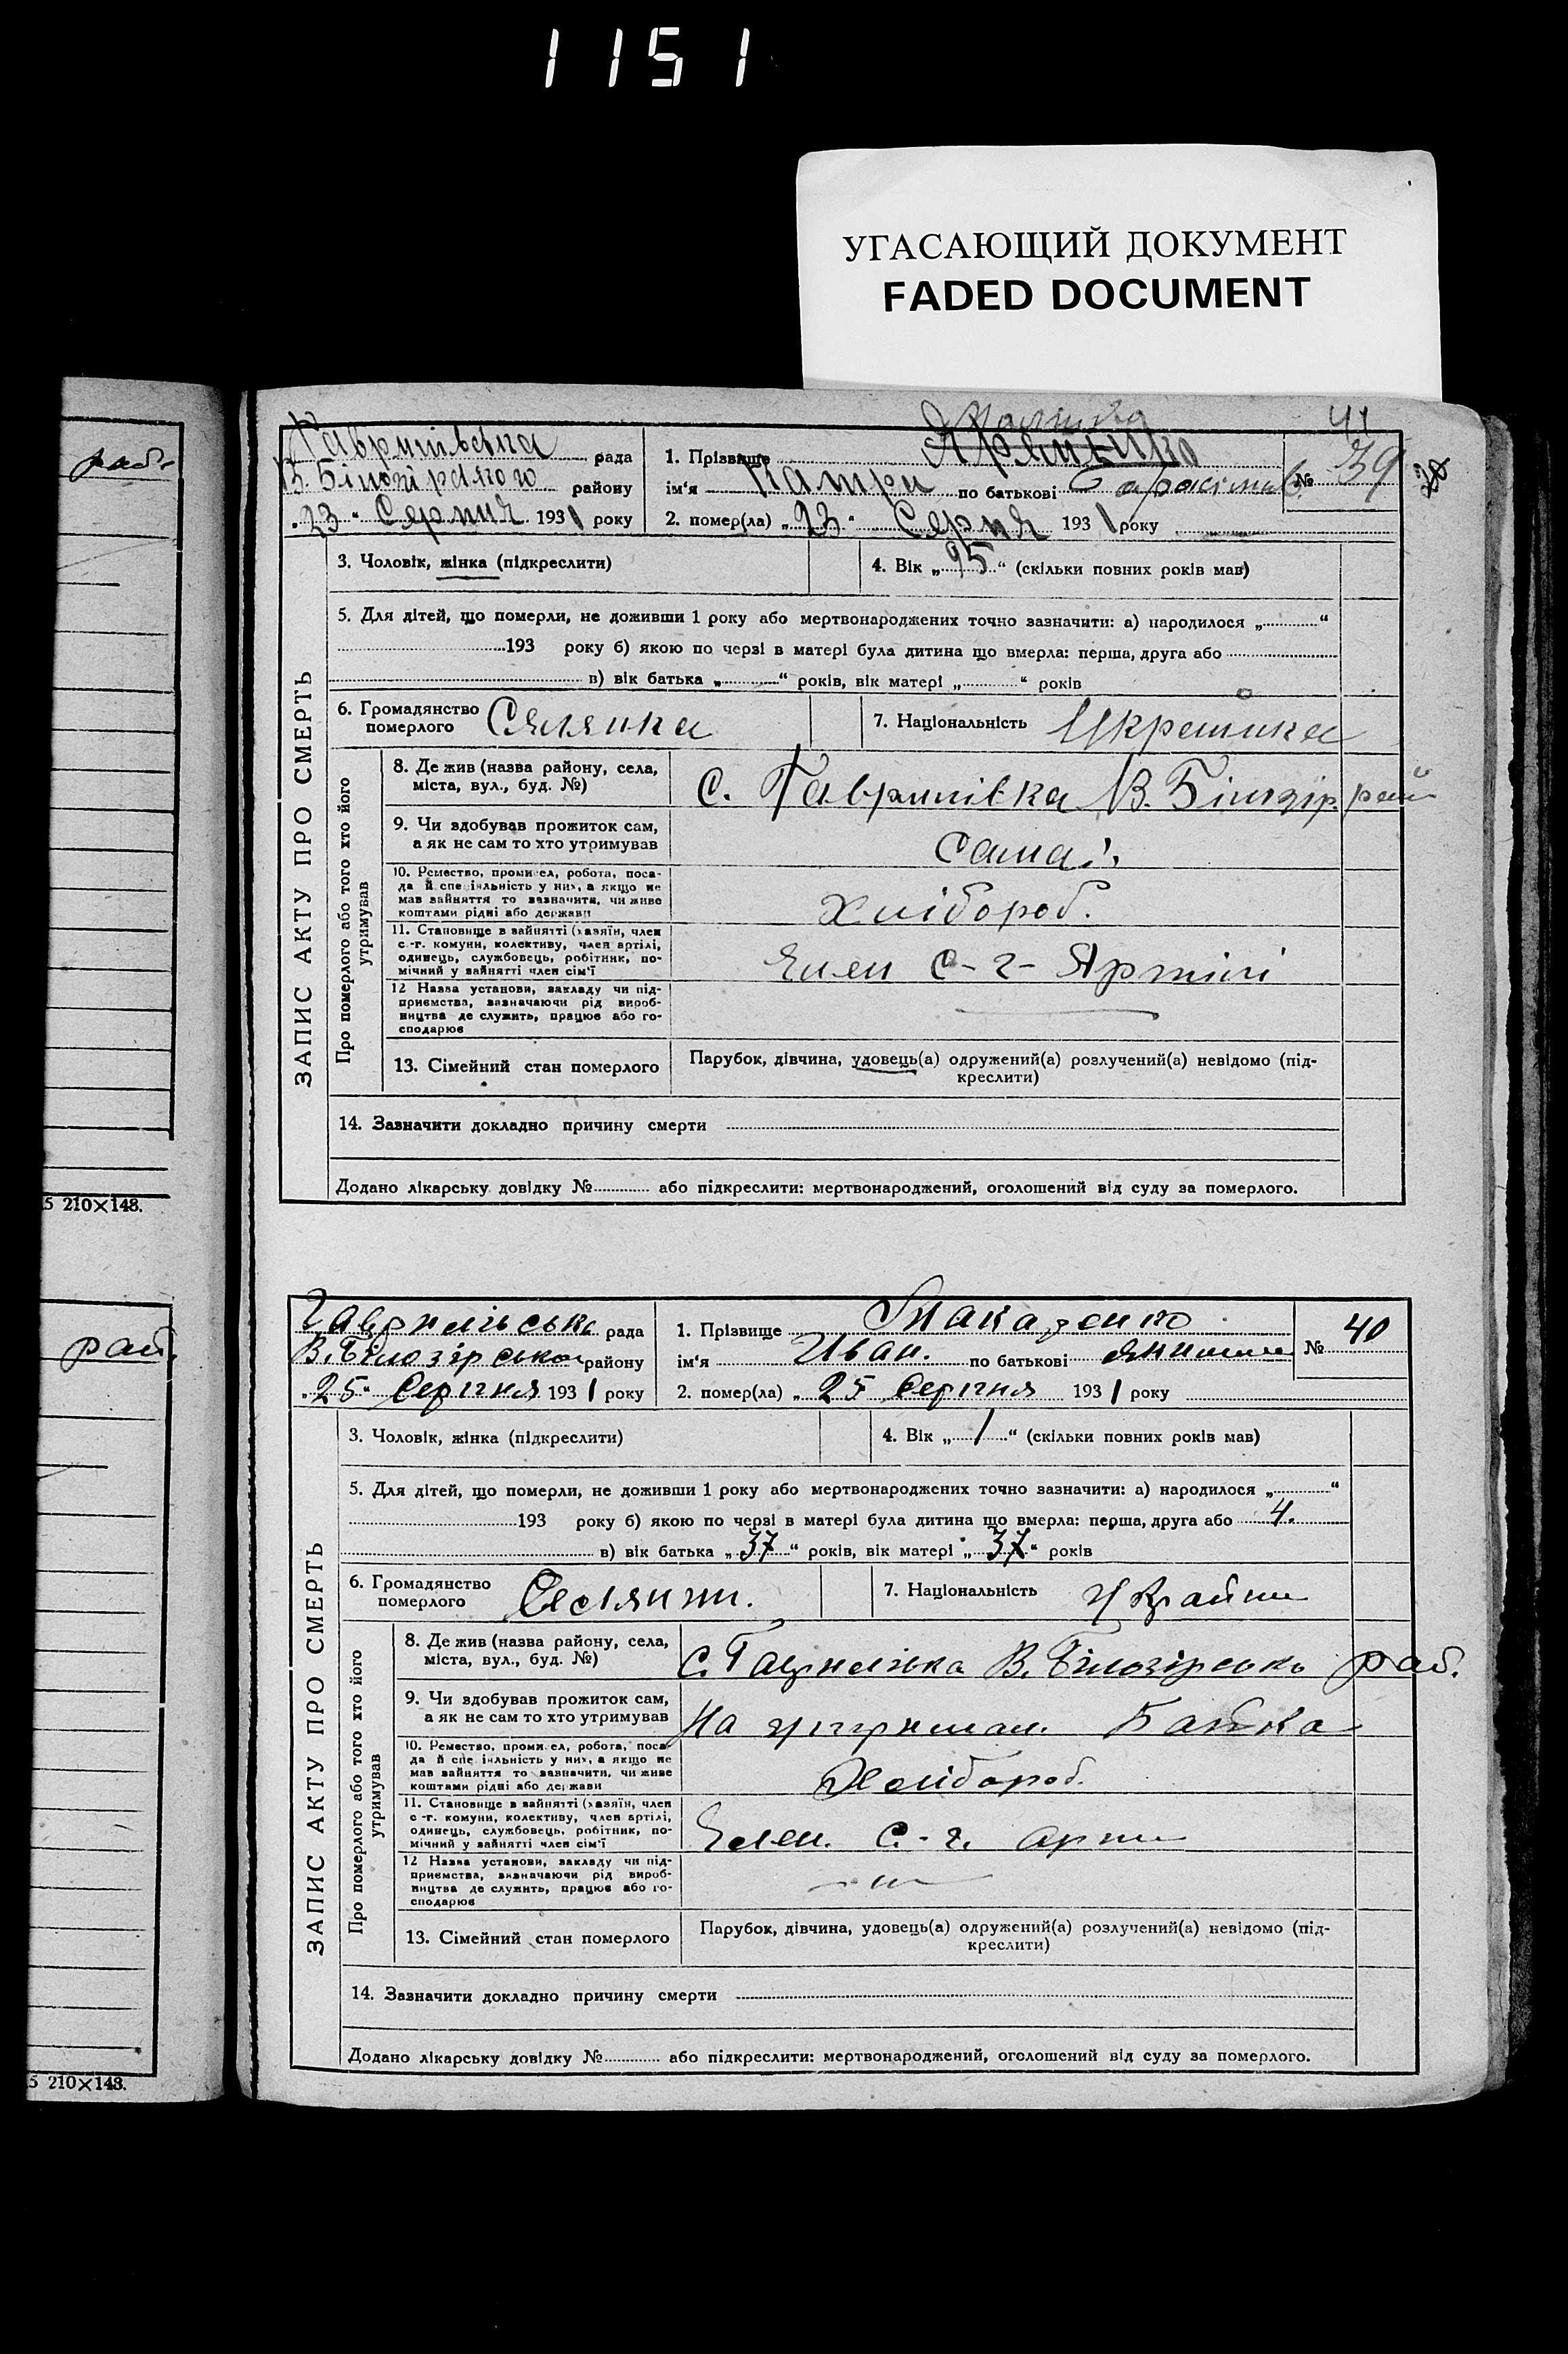 1151
УГАСАЮЩИЙ ДОКУМЕНТ
FADED DOCUMENT
рай.
5 210×148.
рай.
5 210×148.
41
Гаврилівська рада
В. Білозірського району
„23“ Серпня 1931 року
1. Прізвище
ім'я Катри по батькові
№ 39
2. помер(ла) „23“ Серпня 1931 року
ЗАПИС АКТУ ПРО СМЕРТЬ
3. Чоловік, жінка (підкреслити)
4. Вік „95“ (скільки повних років мав)
5. Для дітей, що померли, не доживши 1 року або мертвонароджених точно зазначити: а) народилося „ “
193 року б) якою по черзі в матері була дитина що вмерла: перша, друга або
в) вік батька „ “ років, вік матері „ “ років
6. Громадянство померлого Селянка
7. Національність Українка
Про померлого або того хто його утримував
8. Де жив (назва району, села,
міста, вул., буд. №)
С. Гаврилівка В. Білозір. рай
9. Чи здобував прожиток сам,
а як не сам то хто утримував
Сама
10. Ремество, промисел, робота, поса-
да й спеціяльність у них, а якщо не
мав зайняття то зазначити, чи живе
коштами рідні або держави
Хлібороб.
11. Становище в зайнятті (хазяїн, член
с.-г. комуни, колективу, член артілі,
одинець, службовець, робітник, по-
мічний у зайнятті член сім'ї
Член С-г- Артілі
12 Назва установи, закладу чи під-
приємства, зазначаючи рід вироб-
ництва де служить, працює або го-
сподарює
13. Сімейний стан померлого
Парубок, дівчина, удовець(а) одружений(а) розлучений(а) невідомо (під-
креслити)
14. Зазначити докладно причину смерти
Додано лікарську довідку № або підкреслити: мертвонароджений, оголошений від суду за померлого.
Гаврилівська рада
В. Білозірського району
„25“ Серпня 1931 року
1. Прізвище Макаренко
ім'я Иван. по батькові
№ 40
2. помер(ла) „25 Серпня 1931 року
ЗАПИС АКТУ ПРО СМЕРТЬ
3. Чоловік, жінка (підкреслити)
4. Вік „1“ (скільки повних років мав)
5. Для дітей, що померли, не доживши 1 року або мертвонароджених точно зазначити: а) народилося „ “
193 року б) якою по черзі в матері була дитина що вмерла: перша, друга або 4.
в) вік батька „37“ років, вік матері „37“ років
6. Громадянство померлого Селянин.
7. Національність
Про померлого або того хто його утримував
8. Де жив (назва району, села,
міста, вул., буд. №)
С. Гаврилівка В. Білозірсько рай.
9. Чи здобував прожиток сам,
а як не сам то хто утримував
На утриман. Батька
10. Ремество, промисел, робота, поса-
да й спеціяльність у них, а якщо не
мав зайняття то зазначити, чи живе
коштами рідні або держави
Хлібороб.
11. Становище в зайнятті (хазяїн, член
с.-г. комуни, колективу, член артілі,
одинець, службовець, робітник, по-
мічний у зайнятті член сім'ї
Член. С.-г. арті
12 Назва установи, закладу чи під-
приємства, зазначаючи рід вироб-
ництва де служить, працює або го-
сподарює
13. Сімейний стан померлого
Парубок, дівчина, удовець(а) одружений(а) розлучений(а) невідомо (під-
креслити)
14. Зазначити докладно причину смерти
Додано лікарську довідку № або підкреслити: мертвонароджений, оголошений від суду за померлого.